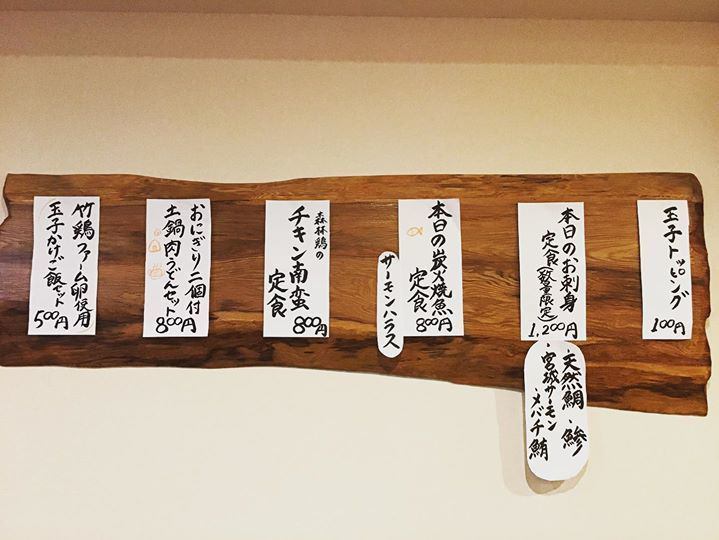 玉子トッピング
100円
本日のお刺身
定食(数量限定)
1,200円
・天然鯛・鯵
・宮城サーモン
・メバチ鮪
本日の炭火焼魚
定食
800円
サーモンハラス
森林鶏の
チキン南蛮
定食
800円
おにぎり二個付
土鍋肉うどんセット
800円
竹鶏ファーム卵使用
玉子かけご飯セット
500円